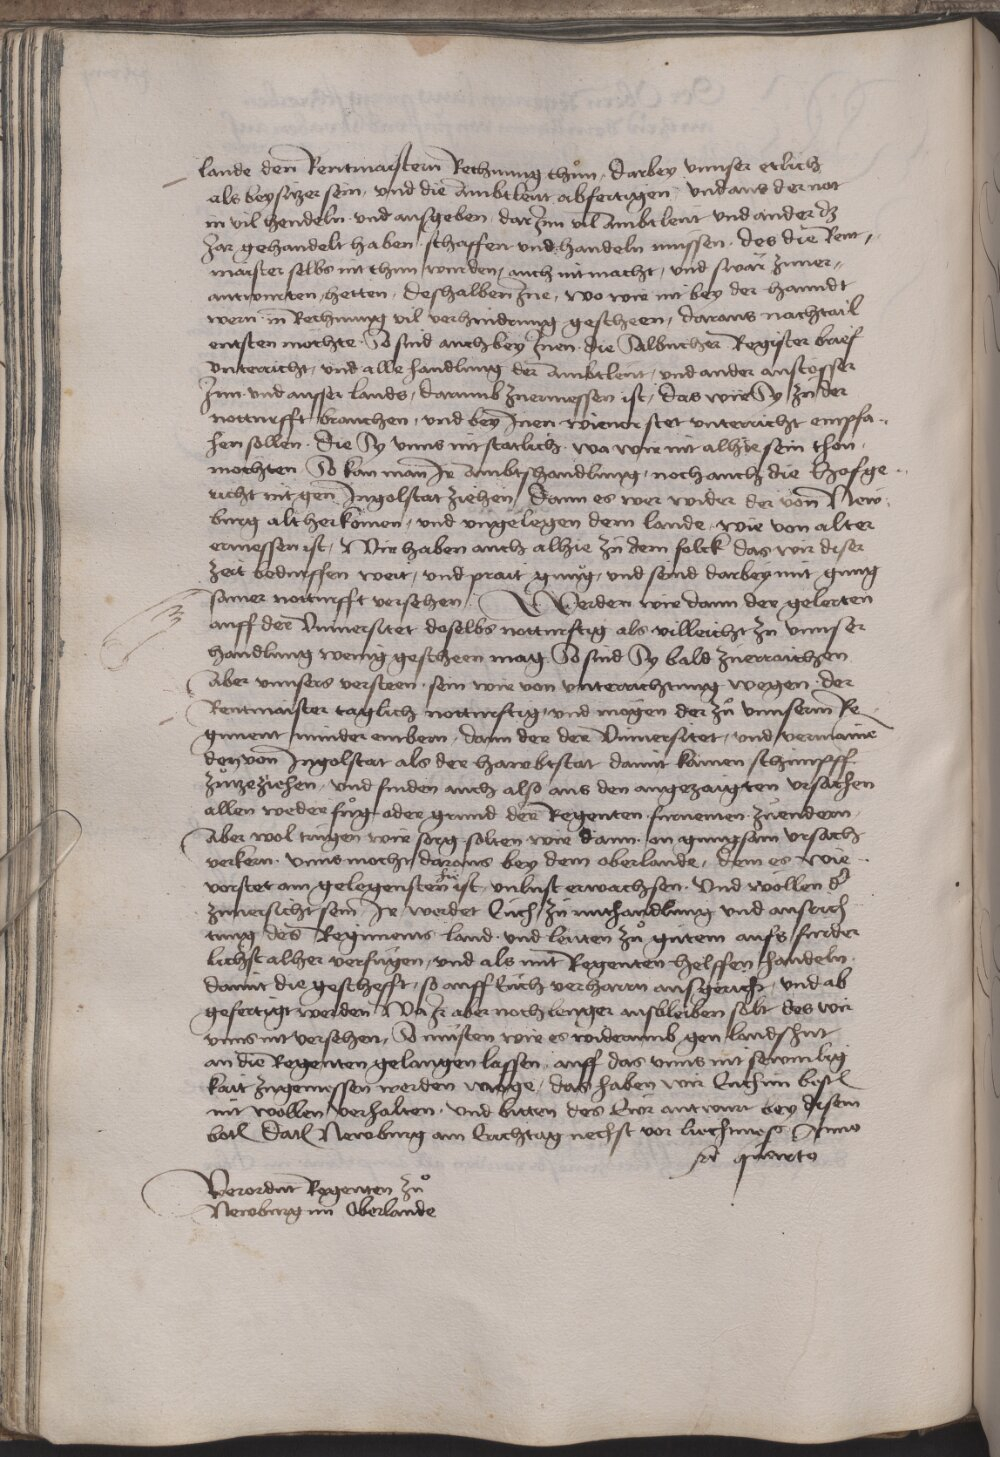 lande den Rentmaistern Rechnung thůn, Darbey vnnser etlich
als beysitzer sein, vnd die Ambtleut abfertigen, vnd aus der not
in vil hendeln vnd ausgeben, dar Inn vil Ambtleut vnd ander dz
Jar gehandelt haben, schaffen vnd handeln müssen, des die Rent-
maister selbs nit thun wurden, auch nit macht, vnd swär zuuer-
antwurten hetten, Deshalben Jne, wo wir nit bey der hanndt
wern in Rechnung vil verhindrung gescheen, daraus nachtail
entsten möchte. So sind auch bey Jnen die Salbucher Register brief
vnterricht, vnd alle handlung der Ambtleut, vnd ander anstosser
Jnn vnd ausser lands, darumb zuermessen ist, das wir Sy zu der
notturfft brauchen, vnd bey Jnen vnterricht empfa-
hen sollen. Die Sy vnns nit statlich, wa wir nit alhie sein thon
mochten. So kan man Jr Ambtshandlung, noch auch die Hofge-
richt nit gen Ingolstat ziehen, Dann es wer wider der von New-
burg alt herkömen, vnd vngelegen dem lande, wie von alter
ermessen ist, Wir haben auch alhie zu dem folck das wir diser
zeit bedurffen weit, vnd prait gnug, vnd seind darbey mit gnug
samer notturfft versehen. Werden wir dann der gelerten
auff der Vniuersitet doselbs notturftig als villeicht zu vnnser
handlung wenig gescheen mag. So sind Sy bald zuerraichen
Aber vnnsers versteen, sein wir von vnterrichtung wegen der
Rentmaister taglich notturftig, vnd mögen der zů vnnserm Re-
giment minder embern, dann der der Vniuersitet, vnd vermaine
den von Ingolstat als der hawbtstat damit kainen schimpff
zůtzeziehen, vnd finden auch also aus den angezaigten vrsachen
allen weder fůg oder grund der Regenten furnemen zuendern,
Aber wol tragen wir sorg solten wir dann on gnugsam vrsach
verkern, vnns mocht daraus bey dem oberlande, dem es wie
vorstet am gelegensten hie ist, vnlust erwachsen. Vnd wollen der
zuuersicht sein Jr werdet Euch zu mithandlung vnd ausrich
tung des Regiments land vnd leuten zů gutem aufs furder
lichst alher verfügen, vnd als mit Regenten helffen handeln
damit die geschefft, so auff Euch verharrn ausgericht, vnd ab
gefertigt werden. Wa Jr aber noch lenger ausbleiben solt des wir
vnns nit versehen, So müsten wir es widerumb gen landshut
an die Regenten gelangen lassen, auff das vnns nit sewmbig
kait zugemessen werden muge, das haben wir Euch im besten
nit wollen verhalten. vnd bitten des Ewr antwurt bey disem
botn. Datum Newburg am Erchtag nechst vor liechtmess Anno
xv quarto
Verordnt Regenten zů
Newburg im Oberlande